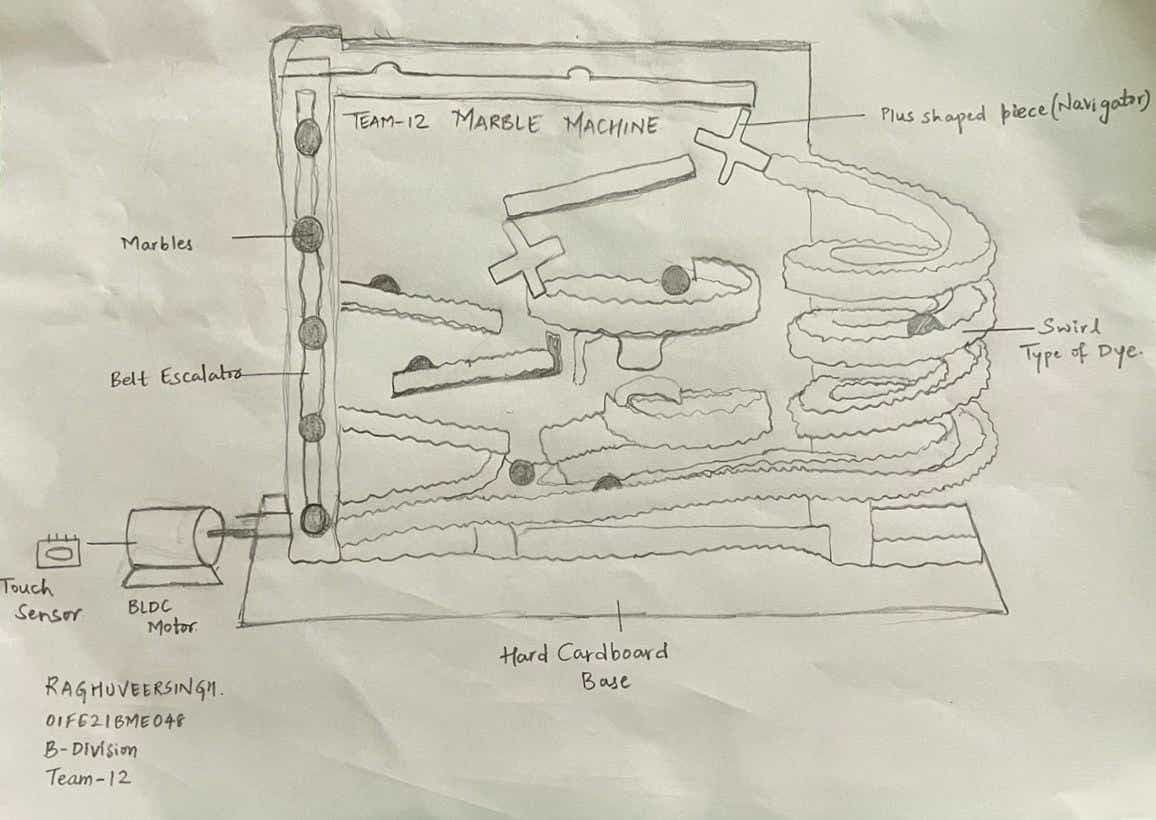 TEAM-12 MARBLE MACHINE
Plus shaped piece (Navigator)
Marbles
Swirl
Type of Dye.
Belt Escalator
Touch
Sensor
BLDC
Motor.
Hard Cardboard
Base
RAGHUVEERSINGH.
01FE21BME048
B-Division
Team-12